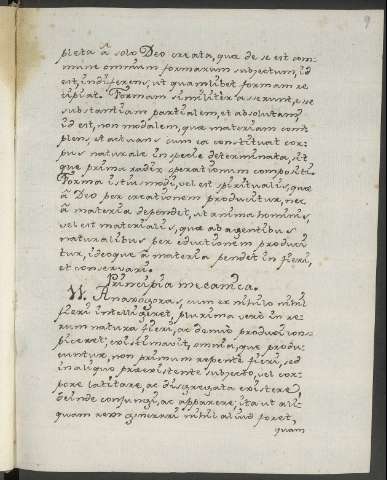 9
pleta à solo Deo creata, quæ de se est com
mune omnium formarum subjectum, id
est, indiferens, ut quamlibet formam re
cipiat. Formam similitèr aserunt, esse
substantiam partialem, et absolutam
id est, non modalem, quæ materiam com
plens, et actuans cum ea constituat cor
pus naturale in specie determinata, sit
que prima radix operationum compositi.
Forma istiusmodi, vel est spiritualis, quæ
à Deo per creationem producitur, nec
à materia dependet, ut anima hominis,
vel est materialis, quæ ab agentibus
naturalibus per eductionem produci
tur, ideoque à materia pendet in fieri,
et conservari.
Principia mecanica.
11. Anaxagoras, cum ex nihilo nihil
fieri intelligeret, plurima verò in re
rum natura fieri, ac denuò produci cons
piceret; existimavit, omnia, quæ produ
cuntur, non primum repente fieri, sed
in aliquo præexistente subjecto, vel cor
pore latitare, ac disgregata existere,
deinde conjungi, ac apparere; ita ut ali
quam rem generari nihil aliud foret,
quam